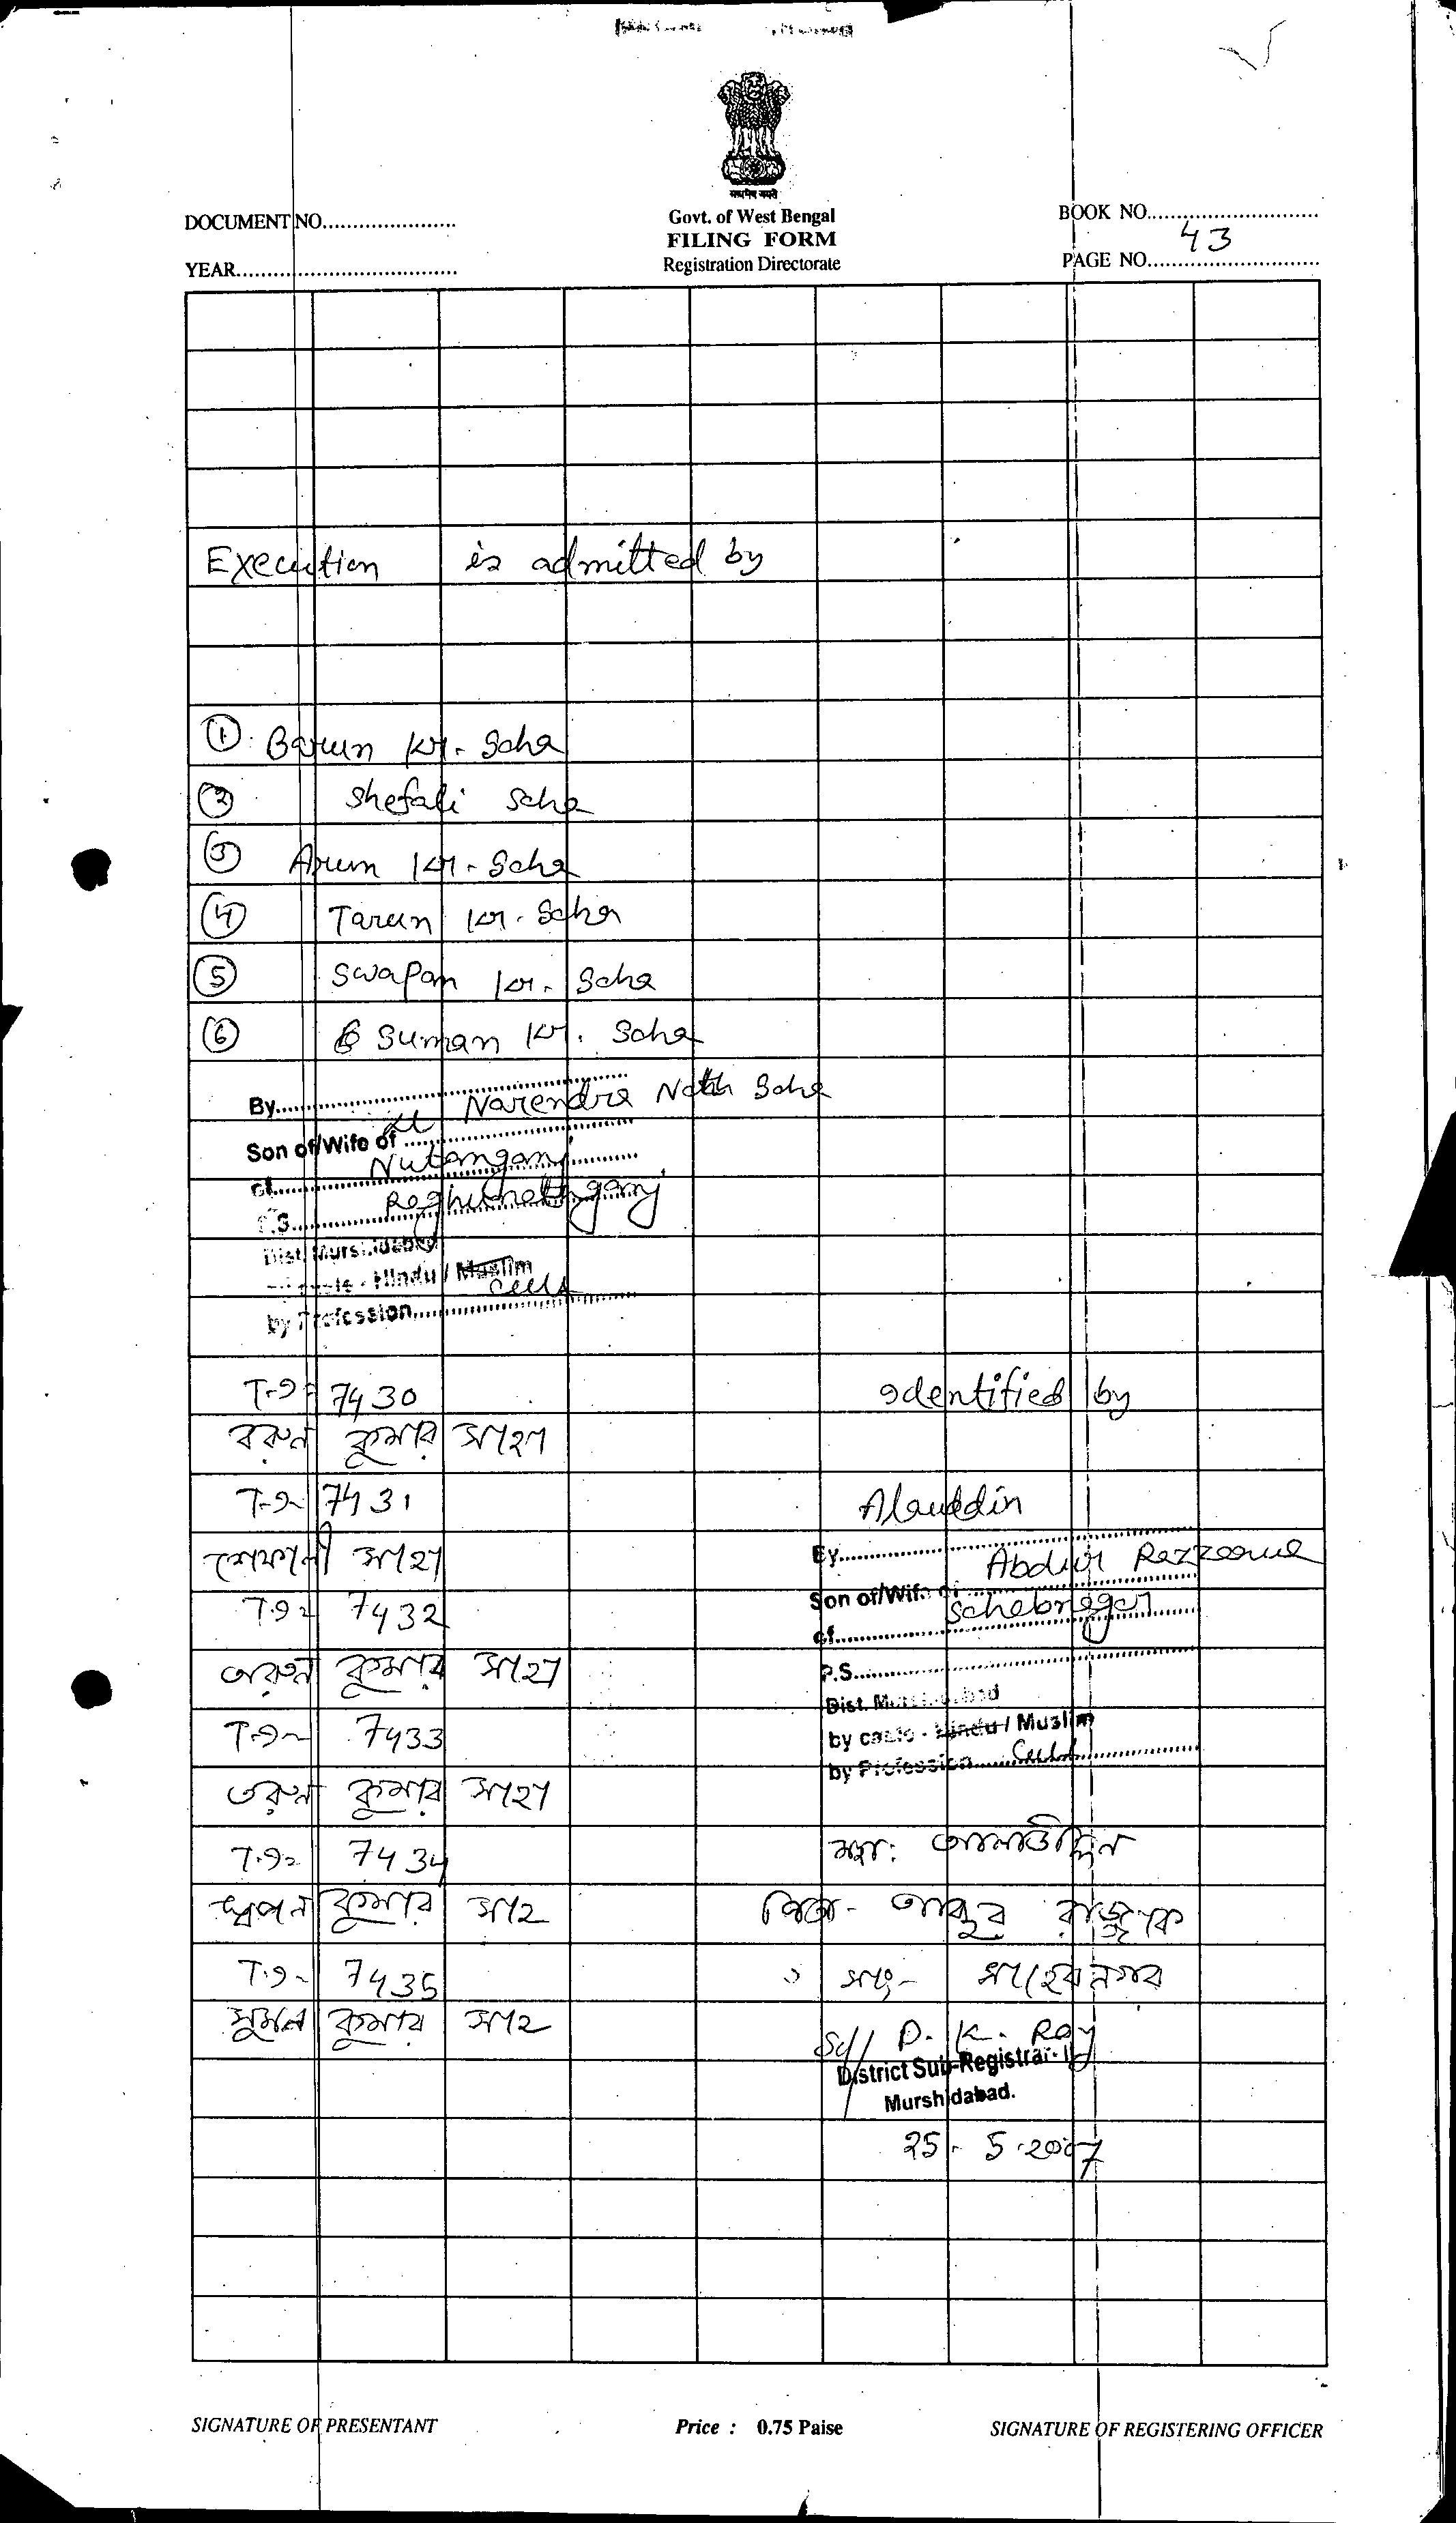 सत्यमेव जयते
DOCUMENT NO......................
Govt. of West Bengal
BOOK NO............................
FILING FORM
43
YEAR....................................
Registration Directorate
PAGE NO............................
Execution is admitted by
① Barun Kr. Saha
② Shefali Saha
③ Arun Kr. Saha
④ Tarun Kr. Saha
⑤ Swapan Kr. Saha
⑥ Suman Kr. Saha
By............
Narendra Nath Saha
Son of/Wife of............
Nutanganj
of............
Raghunathganj
P.S............
Dist. Murshidabad
Hindu / Muslim
by Profession............
7430
বরুন কুমার সাহা
7431
শেফালী সাহা
7432
অরুন কুমার সাহা
7433
তরুন কুমার সাহা
7434
স্বপন কুমার সাহ
7435
সুমন কুমার সাহ
Identified by
Alauddin
By............
Abdur Razzaque
Son of/Wife of............
Sahebnagar
of............
P.S............
Dist. Murshidabad
by caste - Hindu / Muslim
by Profession............
মহা: আলাউদ্দিন
পিতা- আব্দুর রাজ্জাক
সাং- সাহেবনগর
Sd/ D. K. Roy
District Sub-Registrar-II
Murshidabad.
25-5-2007
SIGNATURE OF PRESENTANT
Price : 0.75 Paise
SIGNATURE OF REGISTERING OFFICER